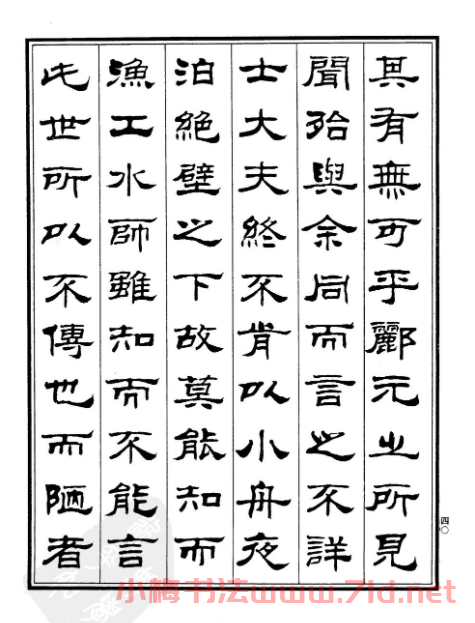 其有無可乎酈元之所見
聞殆與余同而言之不詳
士大夫終不肯以小舟夜
泊絕壁之下故莫能知而
漁工水師雖知而不能言
此世所以不傳也而陋者
四〇
小梅书法www.7ld.net